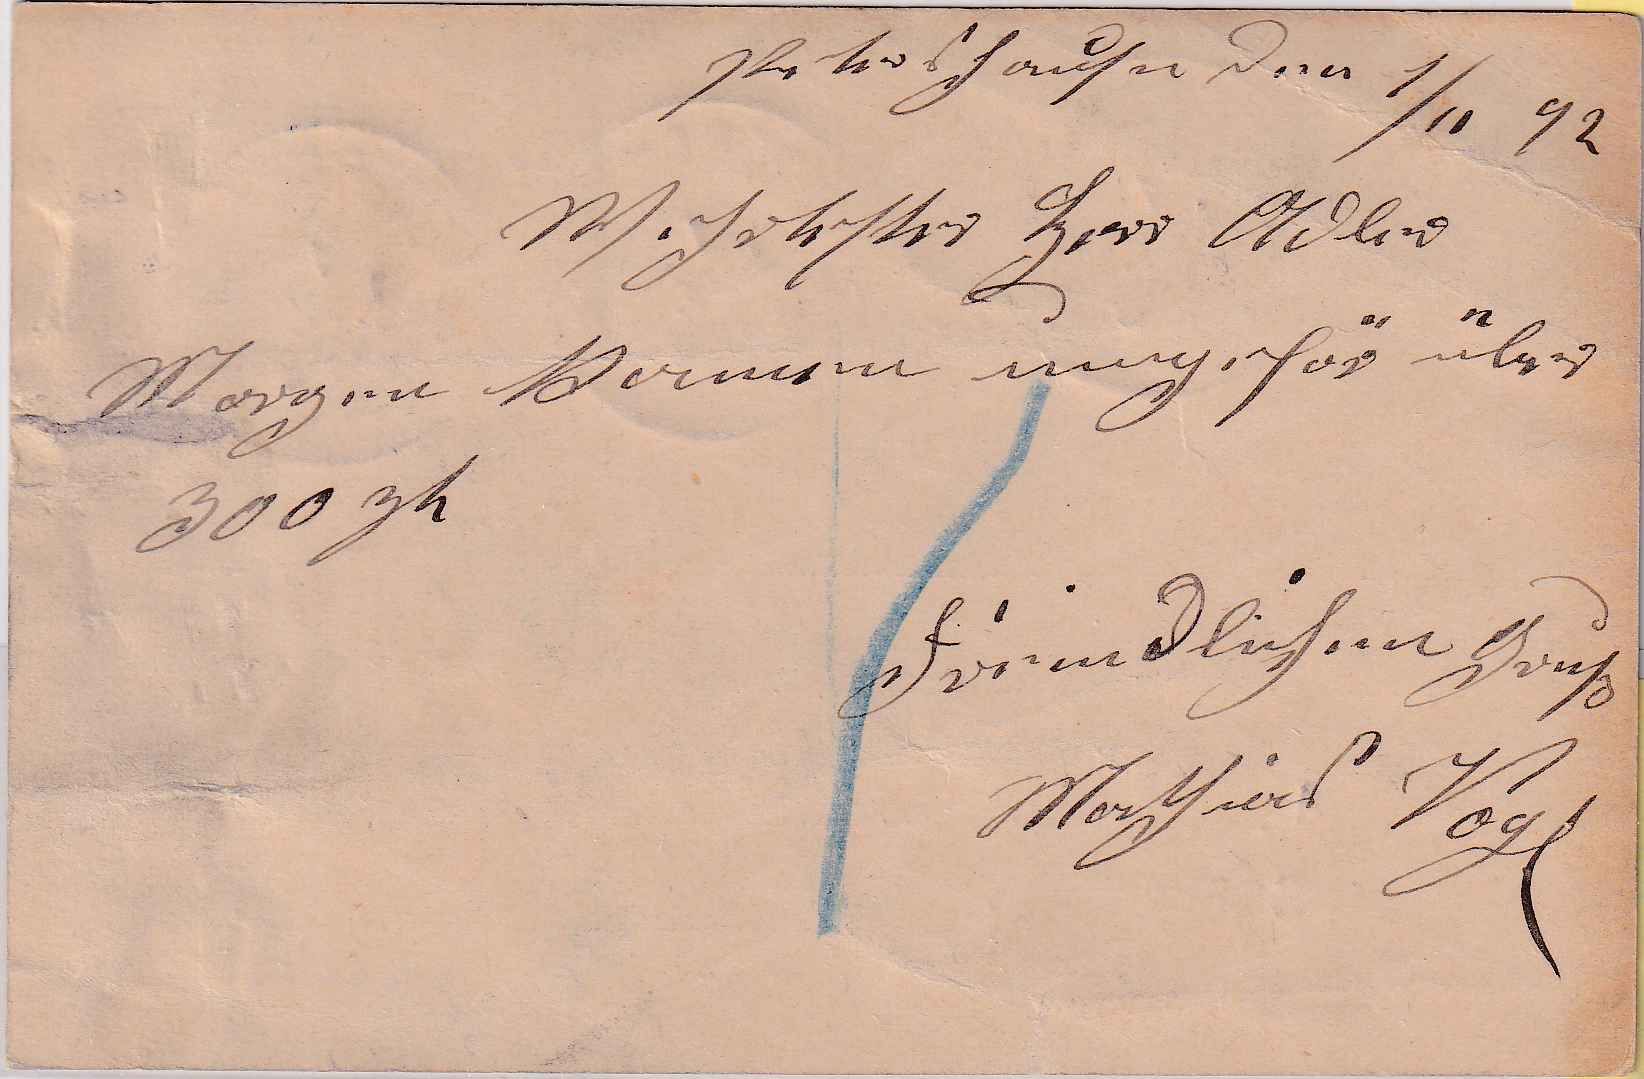 Petershausen den 1/11 92
Wehrtester Herr Adler
Morgen kommen ungeför über
300 zh
Freundlichen Gruß
Mathias Vogl